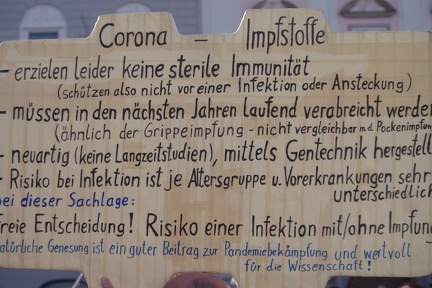 Corona - Impfstoffe
- erzielen leider keine sterile Immunität
(schützen also nicht vor einer Infektion oder Ansteckung)
- müssen in den nächsten Jahren laufend verabreicht werden
(ähnlich der Grippeimpfung - nicht vergleichbar m.d. Pockenimpfung
- neuartig (keine Langzeitstudien), mittels Gentechnik hergestell
- Risiko bei Infektion ist je Altersgruppe u. Vorerkrankungen sehr
unterschiedlich
bei dieser Sachlage:
Freie Entscheidung! Risiko einer Infektion mit/ohne Impfun
natürliche Genesung ist ein guter Beitrag zur Pandemiebekämpfung und wertvoll
für die Wissenschaft!